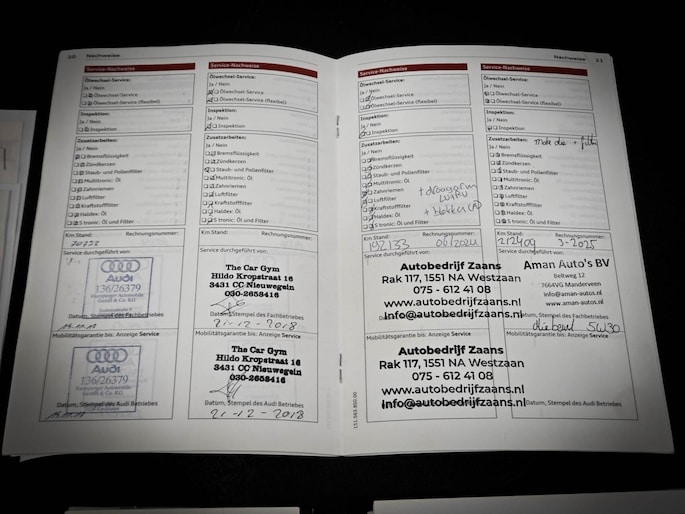 20 Nachweise
Service-Nachweise
Ölwechsel-Service:
Ja / Nein
Ölwechsel-Service
Ölwechsel-Service (flexibel)
Inspektion:
Ja / Nein
Inspektion
Zusatzarbeiten:
Ja / Nein
Bremsflüssigkeit
Zündkerzen
Staub- und Pollenfilter
Multitronic: Öl
Zahnriemen
Luftfilter
Kraftstofffilter
Haldex: Öl
S tronic: Öl und Filter
Km Stand: Rechnungsnummer:
Service durchgeführt von:
Audi
136/26379
Datum, Stempel des Fachbetriebes
Mobilitätsgarantie bis: Anzeige Service
Audi
136/26379
Datum, Stempel des Audi Betriebes
Service-Nachweise
Ölwechsel-Service:
Ja / Nein
Ölwechsel-Service
Ölwechsel-Service (flexibel)
Inspektion:
Ja / Nein
Inspektion
Zusatzarbeiten:
Ja / Nein
Bremsflüssigkeit
Zündkerzen
Staub- und Pollenfilter
Multitronic: Öl
Zahnriemen
Luftfilter
Kraftstofffilter
Haldex: Öl
S tronic: Öl und Filter
Km Stand: Rechnungsnummer:
Service durchgeführt von:
The Car Gym
Hildo Kropstraat 16
3431 CC Nieuwegein
030-2658416
Datum, Stempel des Fachbetriebes
21-12-2018
Mobilitätsgarantie bis: Anzeige Service
The Car Gym
Hildo Kropstraat 16
3431 CC Nieuwegein
030-2658416
Datum, Stempel des Audi Betriebes
21-12-2018
Nachweise 21
Service-Nachweise
Ölwechsel-Service:
Ja / Nein
Ölwechsel-Service
Ölwechsel-Service (flexibel)
Inspektion:
Ja / Nein
Inspektion
Zusatzarbeiten:
Ja / Nein
Bremsflüssigkeit
Zündkerzen
Staub- und Pollenfilter
Multitronic: Öl
Zahnriemen
Luftfilter
Kraftstofffilter
Haldex: Öl
S tronic: Öl und Filter
Km Stand: Rechnungsnummer:
192133 06/2024
Service durchgeführt von:
Autobedrijf Zaans
Rak 117, 1551 NA Westzaan
075 - 612 41 08
www.autobedrijfzaans.nl
info@autobedrijfzaans.nl
Mobilitätsgarantie bis: Anzeige Service
Autobedrijf Zaans
Rak 117, 1551 NA Westzaan
075 - 612 41 08
www.autobedrijfzaans.nl
info@autobedrijfzaans.nl
Service-Nachweise
Ölwechsel-Service:
Ja / Nein
Ölwechsel-Service
Ölwechsel-Service (flexibel)
Inspektion:
Ja / Nein
Inspektion
Zusatzarbeiten:
Ja / Nein
Bremsflüssigkeit
Zündkerzen
Staub- und Pollenfilter
Multitronic: Öl
Zahnriemen
Luftfilter
Kraftstofffilter
Haldex: Öl
S tronic: Öl und Filter
Km Stand: Rechnungsnummer:
212409 3-2025
Service durchgeführt von:
Aman Auto's BV
Beltweg 12
7664VG Manderveen
info@aman-autos.nl
www.aman-autos.nl
Datum, Stempel des Fachbetriebes
5W30
Mobilitätsgarantie bis: Anzeige Service
Datum, Stempel des Audi Betriebes
151.565.850.00